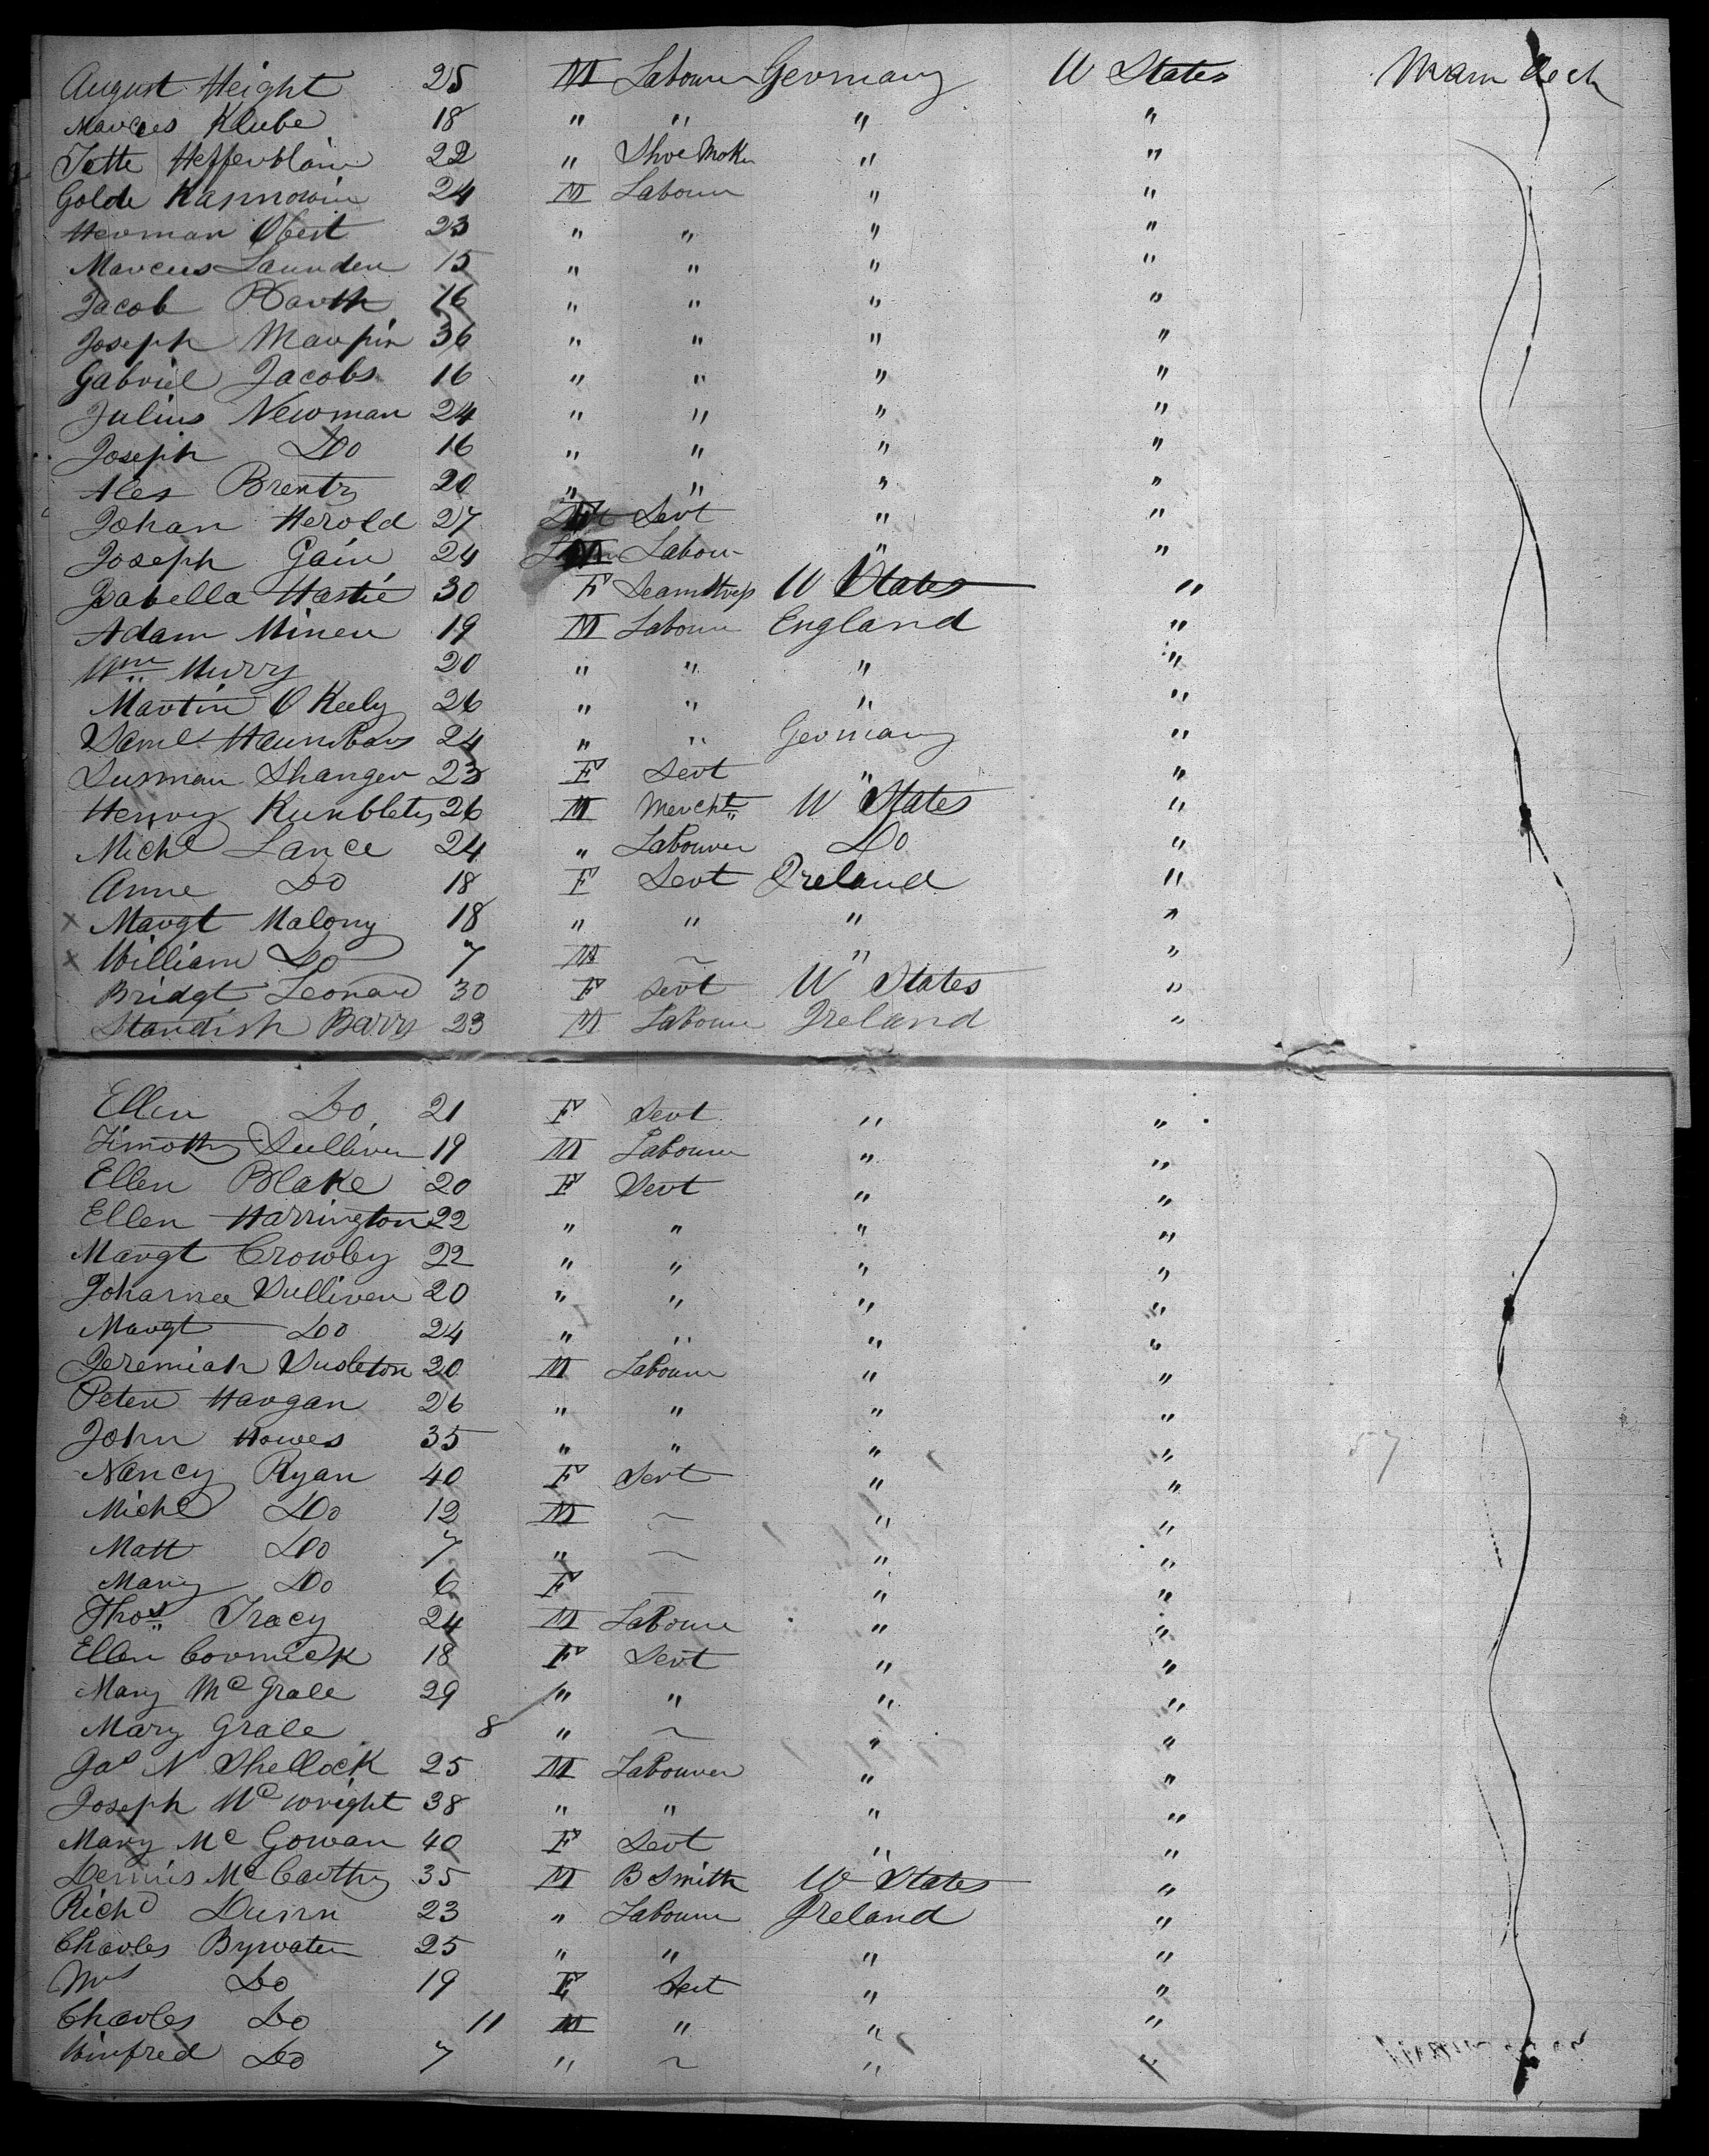 August Height 25 M Labourer Germany U States Main deck
Marcus Klube 18 " " " "
Jette Heffenblain 22 " Shoe Maker " "
Golde Kasmowin 24 M Labourer " "
Herman Obert 23 " " " "
Marcus Launden 15 " " " "
Jacob Barth 16 " " " "
Joseph Maupin 36 " " " "
Gabriel Jacobs 16 " " " "
Julius Newman 24 " " " "
Joseph Do 16 " " " "
Alex Brentz 20 " " " "
Johan Herold 27 F Sevt " "
Joseph Gain 24 M Labour " "
Isabella Hastie 30 F Seamstress U States "
Adam Miner 19 M Labourer England "
Wm Murry 20 " " " "
Martin O Keely 26 " " " "
Saml 24 " " Germany "
Susman Shanger 23 F Sevt " "
Henry Kunbletz 26 M Mercht U States "
Michl Lance 24 " Labourer Do "
Anne Do 18 F Sevt Ireland "
x Margt Malony 18 " " " "
x William Do 7 M ~ " "
Bridgt Leonard 30 F Sevt U States "
Standish Barry 23 M Labourer Ireland "
Ellen Do 21 F Sevt " "
Timothy Sullivan 19 M Labourer " "
Ellen Blake 20 F Sevt " "
Ellen Harrington 22 " " " "
Margt Crowley 22 " " " "
Johanna Sullivan 20 " " " "
Margt Do 24 " " " "
Jeremiah Singleton 20 M Labourer " "
Peter Hargan 26 " " " "
John Howes 35 " " " "
Nancy Ryan 40 F Sevt " "
Michl Do 12 M ~ " "
Matt Do 7 " ~ " "
Mary Do 6 F — " "
Thos Tracy 24 M Labourer " "
Ellen Cormick 18 F Sevt " "
Mary Mc Grale 29 " " " "
Mary Grale 8 " ~ " "
Jas N Shellock 25 M Labourer " "
Joseph Mc Wright 38 " " " "
Mary Mc Gowan 40 F Sevt " "
Dennis Mc Carthy 35 M B Smith U States "
Richd Dunn 23 " Labourer Ireland "
Charles Bywater 25 " " " "
Mrs Do 19 F Sevt " "
Charles Do 11 M " " "
Winfred Do 7 " ~ " "